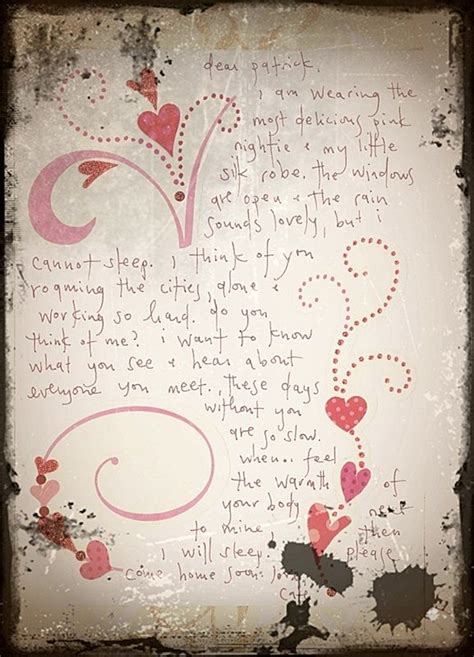 dear patrick,
i am wearing the
most delicious pink
nightie & my little
silk robe. the windows
are open & the rain
sounds lovely, but i
cannot sleep. i think of you
roaming the cities, alone &
working so hard. do you
think of me? i want to know
what you see & hear about
everyone you meet. these days
without you
are so slow.
when i feel
the warmth of
your body next
to mine then
i will sleep. please
come home soon.